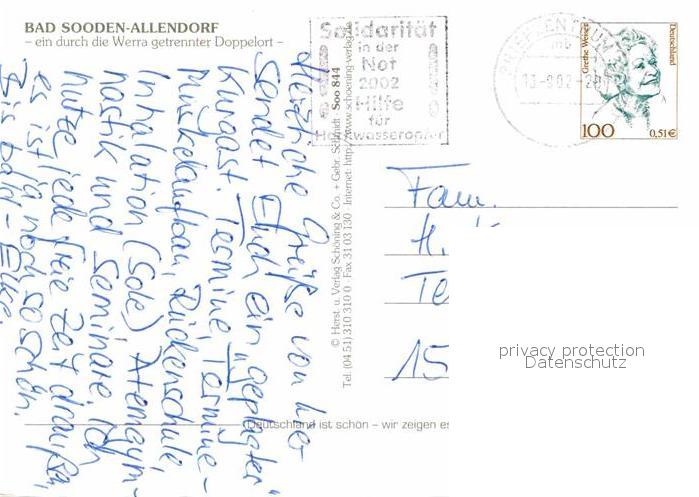 BAD SOODEN-ALLENDORF
– ein durch die Werra getrennter Doppelort –
Herzliche Grüße von hier
sendet Euch ein „geplagter“
Kurgast. Termine, Termine –
Muskelaufbau, Rückenschule,
Inhalation (Sole) Atemgym-
nastik und Seminare. Ich
nutze jede freie Zeit draußen,
es ist ja noch so schön.
Bis bald –
© Herst. u. Verlag Schöning & Co. + Gebr. Schmidt · Soo 844
Tel. (04 51) 310 310 0 · Fax 31 03 130 · Internet: http://www.schoening-verlag.de
Solidarität
in der
Not
2002
Hilfe
für
Hochwasseropfer
BRIEFZENTRUM
-9.02-20
Grethe Weiser
Deutschland
100
0,51€
Fam.
H.
Te
15
privacy protection
Datenschutz
Deutschland ist schön – wir zeigen es